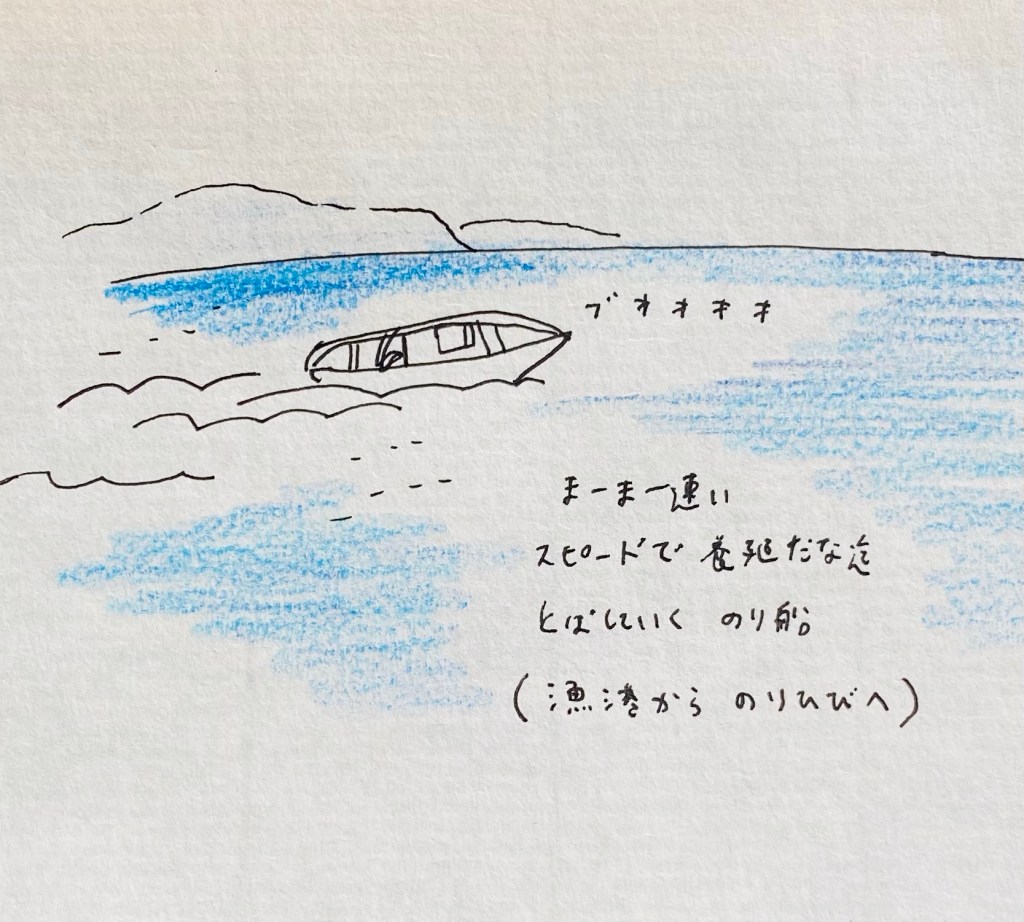 ブオオオオ
まーまー速い
スピードで養殖だな迄
とばしていく のり船
(漁港から のりひびへ)